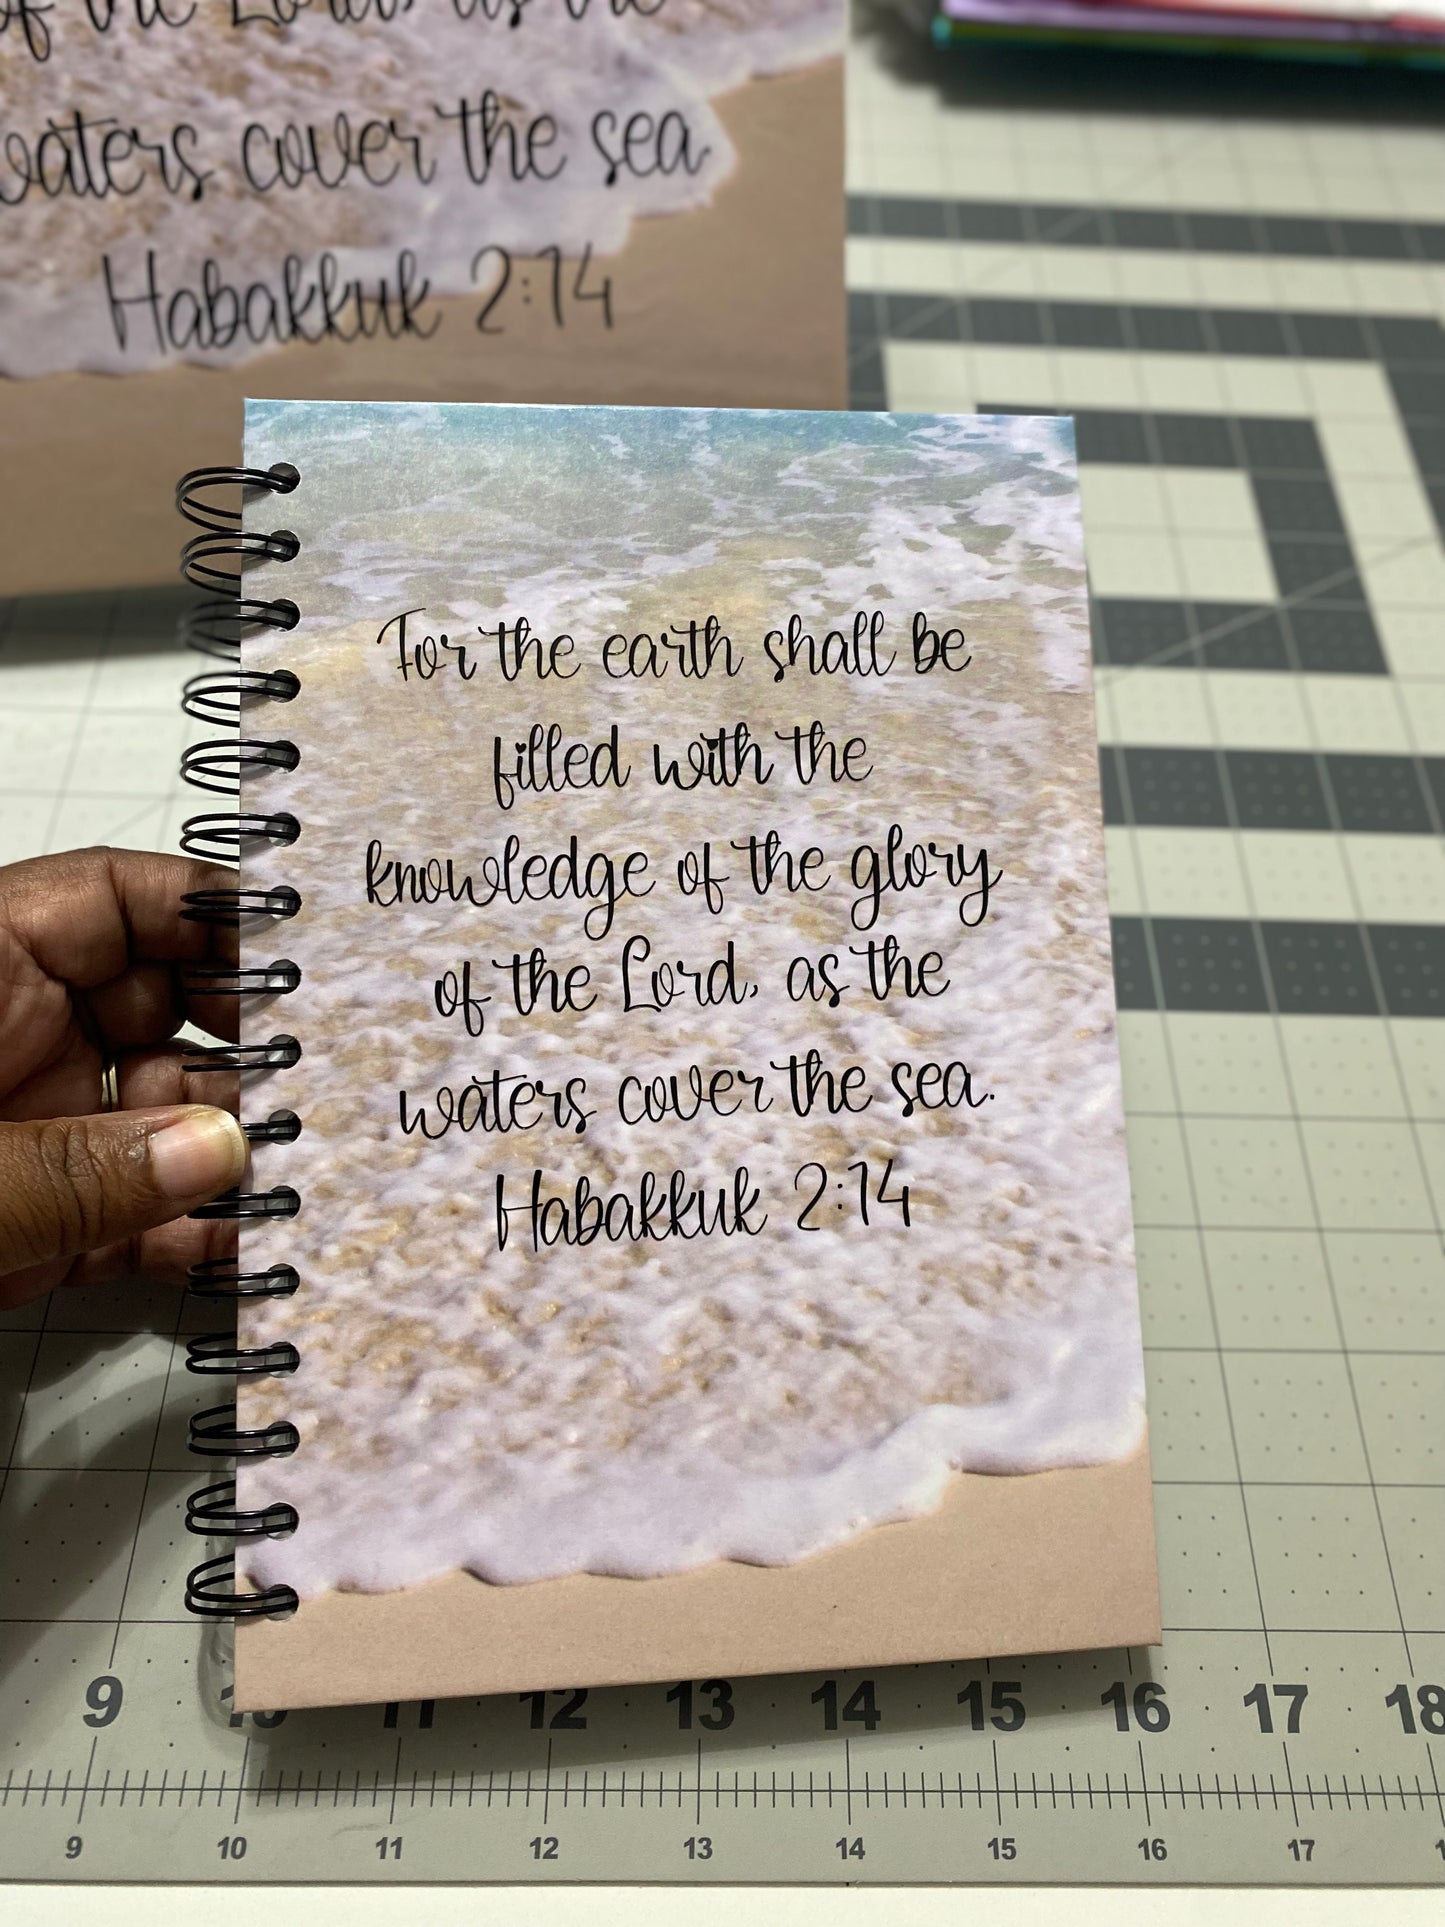 of the Lord, as the
waters cover the sea
Habakkuk 2:14
For the earth shall be
filled with the
knowledge of the glory
of the Lord, as the
waters cover the sea.
Habakkuk 2:14
9 10 11 12 13 14 15 16 17 18
9 10 11 12 13 14 15 16 17